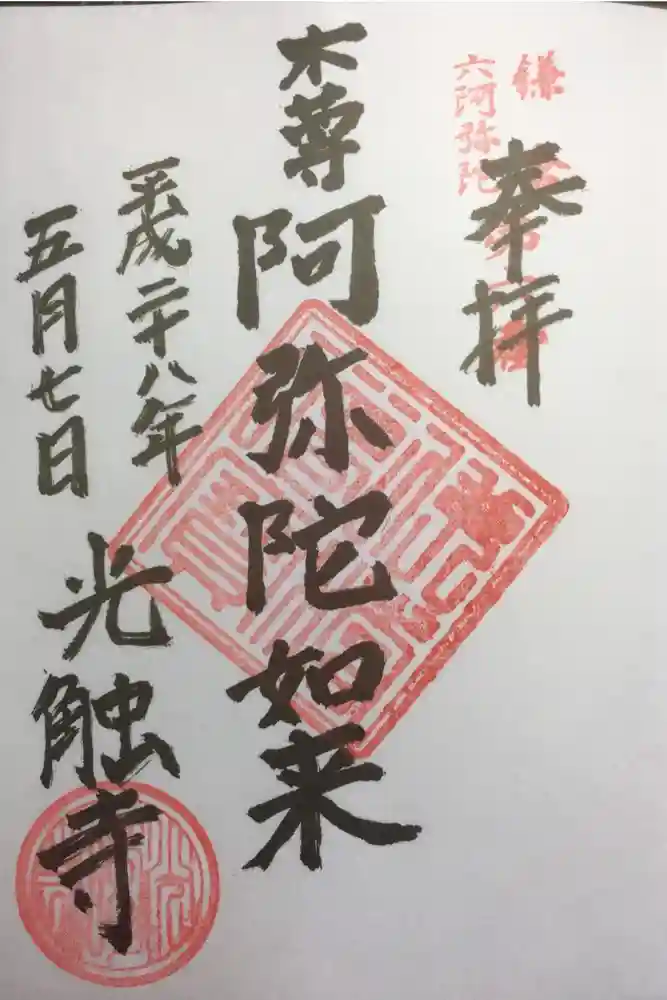 鎌倉
六阿弥陀
奉拝
本尊 阿弥陀如来
平成二十八年
五月七日
光触寺